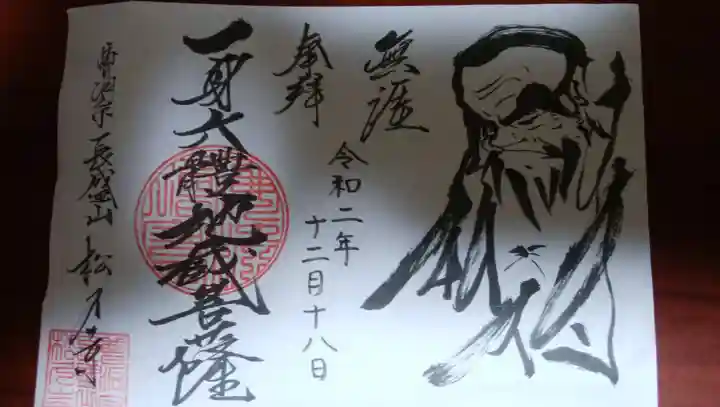 無涯
奉拝
令和二年
十二月十八日
一身六體地蔵菩薩
曹洞宗 長盛山 松月寺